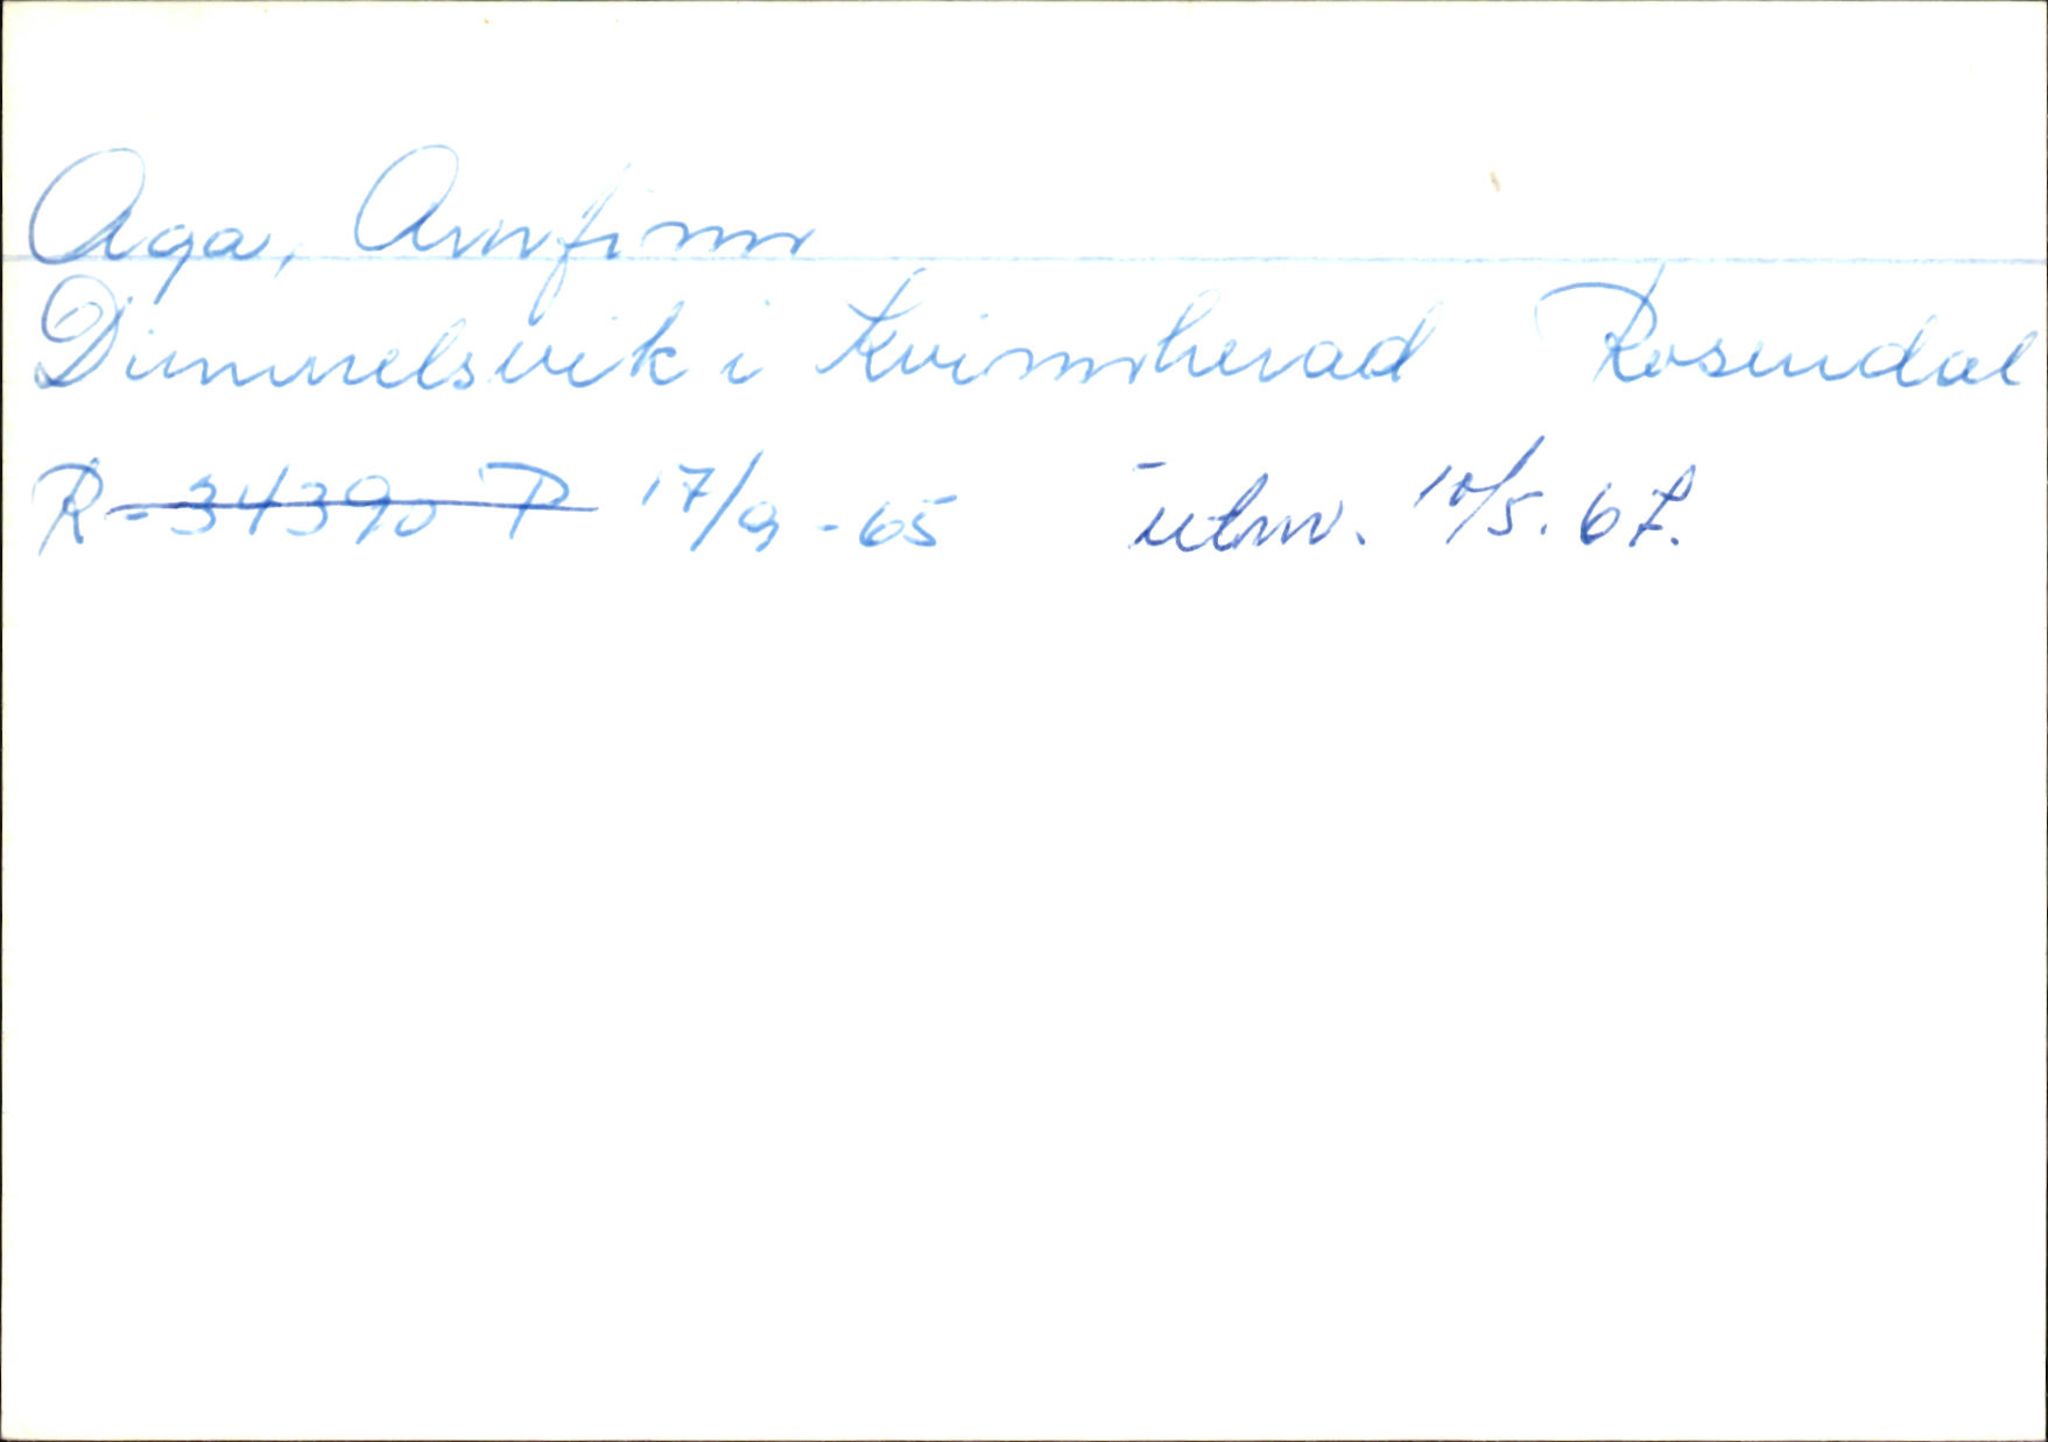 Aga, Arnfinn
Dimmelsvik i Kvinnherad Rosendal
R-34390 P 17/9-65 utm. 10/5. 67.